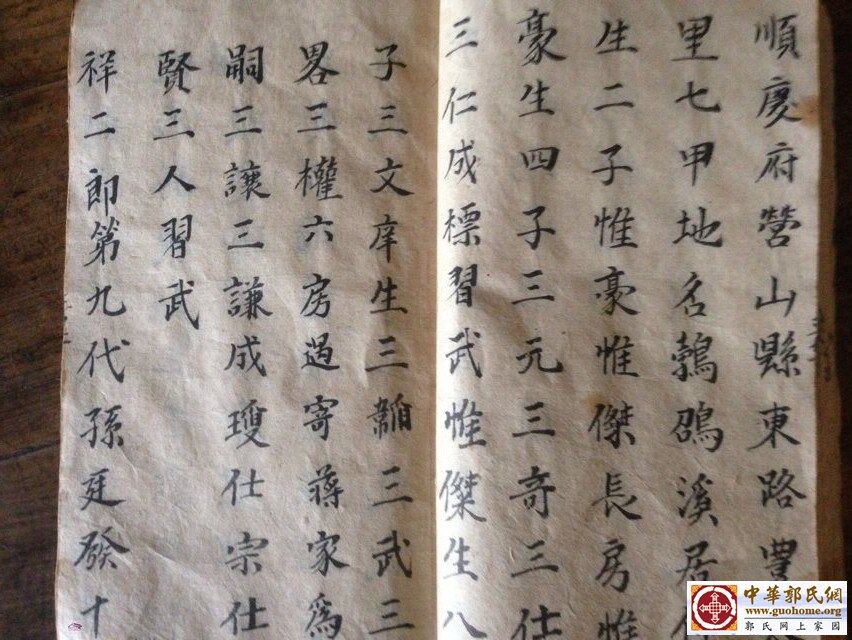 順慶府營山縣東路豐
里七甲地名鵓鴿溪居住
生二子惟豪惟傑長房惟
豪生四子三元三奇三仕
三仁成標習武惟傑生八
子三文庠生三韜三武三
畧三權六房過寄蔣家為
嗣三讓三謙成瓊仕宗仕
賢三人習武
祥二郎第九代孫廷發十
中華郭氏網
www.guohome.org
郭氏网上家园